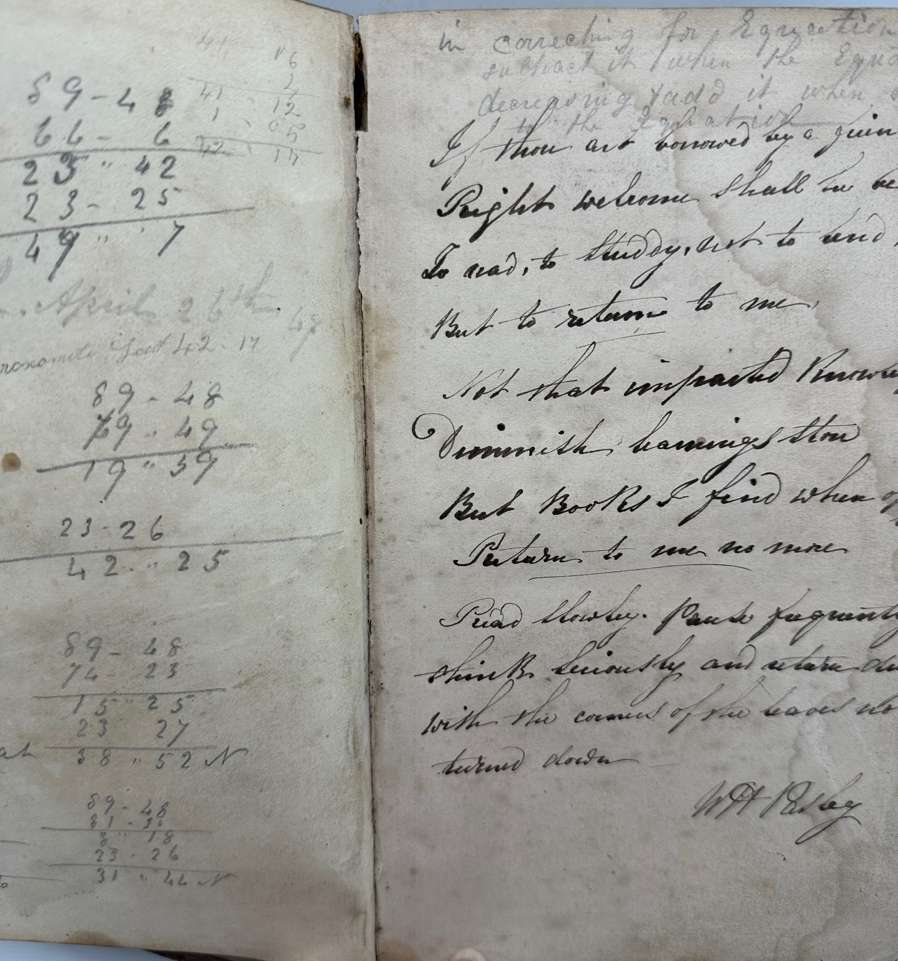 89 - 48
66 - 6
23 " 42
23 - 25
49 " 7
April 26th
42 - 17
89 - 48
69 - 49
19 " 39
23 - 26
42 " 25
89 - 48
74 - 23
15 " 25
23 27
38 " 52 N
89 - 48
8 " 18
23 - 26
31 " 44 N
in correcting for Equation
subtract it when the Equa
decreasing & add it when
to the Equation
If thou art borrowed by a frien
Right welcome shall he be
To read, to studdy, not to lend,
But to return to me,
Not that imparted Knowle
Diminish learnings Stor
But Books I find when of
Return to me no more
Read Slowley. Pause frequently
think Seriously and return du
with the corners of the leaves no
turned down